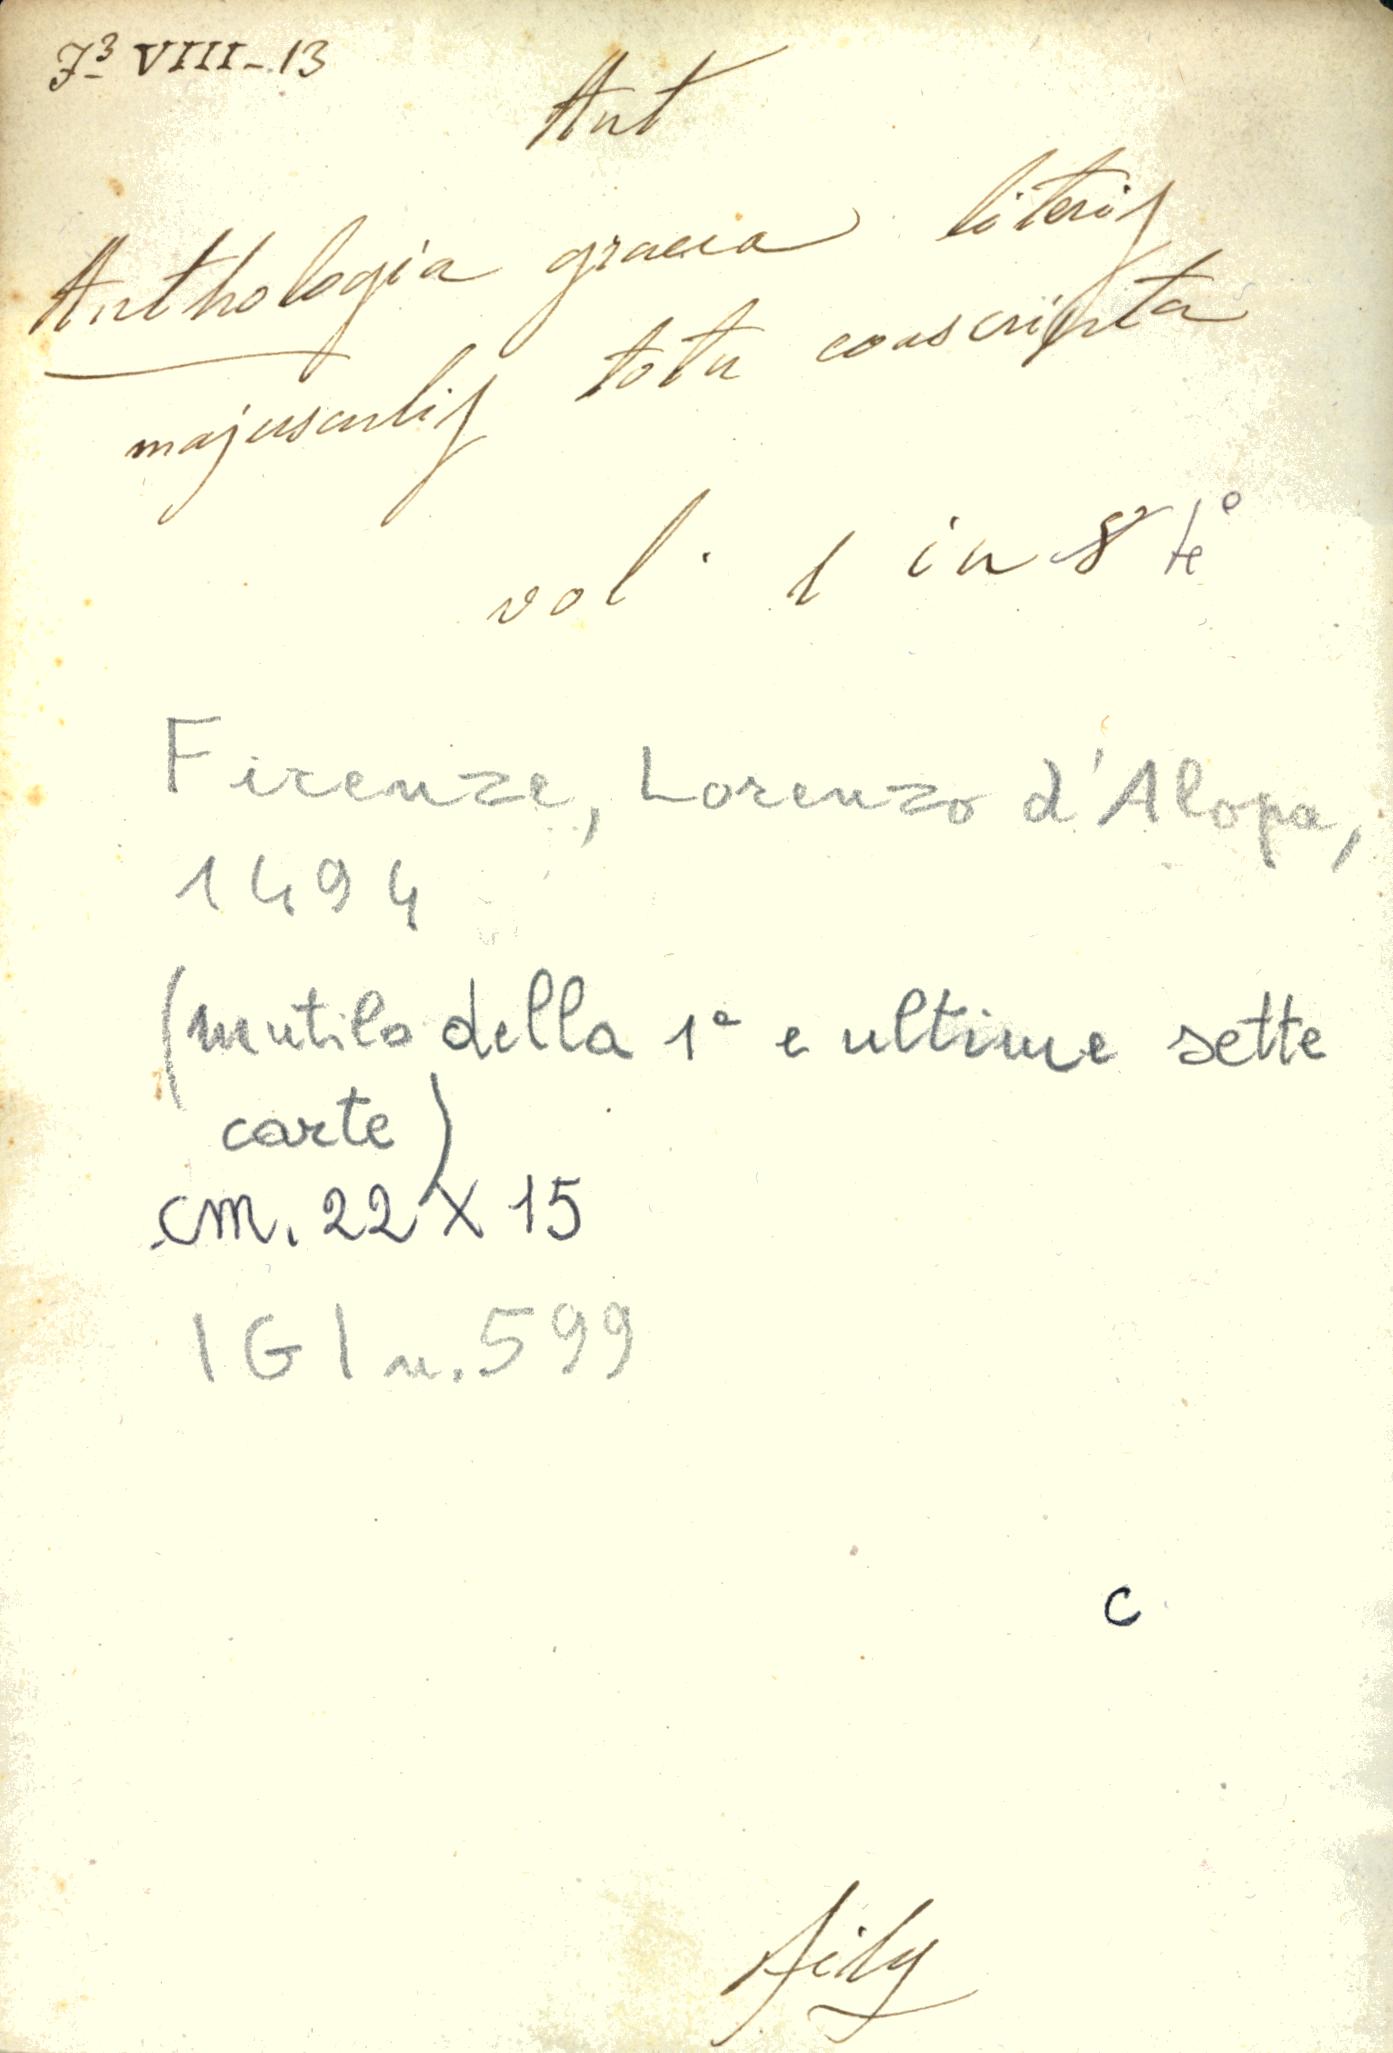 VIII-13
Ant
Anthologia graeca literis
majusculis tota conscripta
vol. 1 in 8° 4°
Firenze, Lorenzo d'Alopa,
1494
(mutilo della 1ª e ultime sette
carte)
cm. 22 X 15
IGI n. 599
C